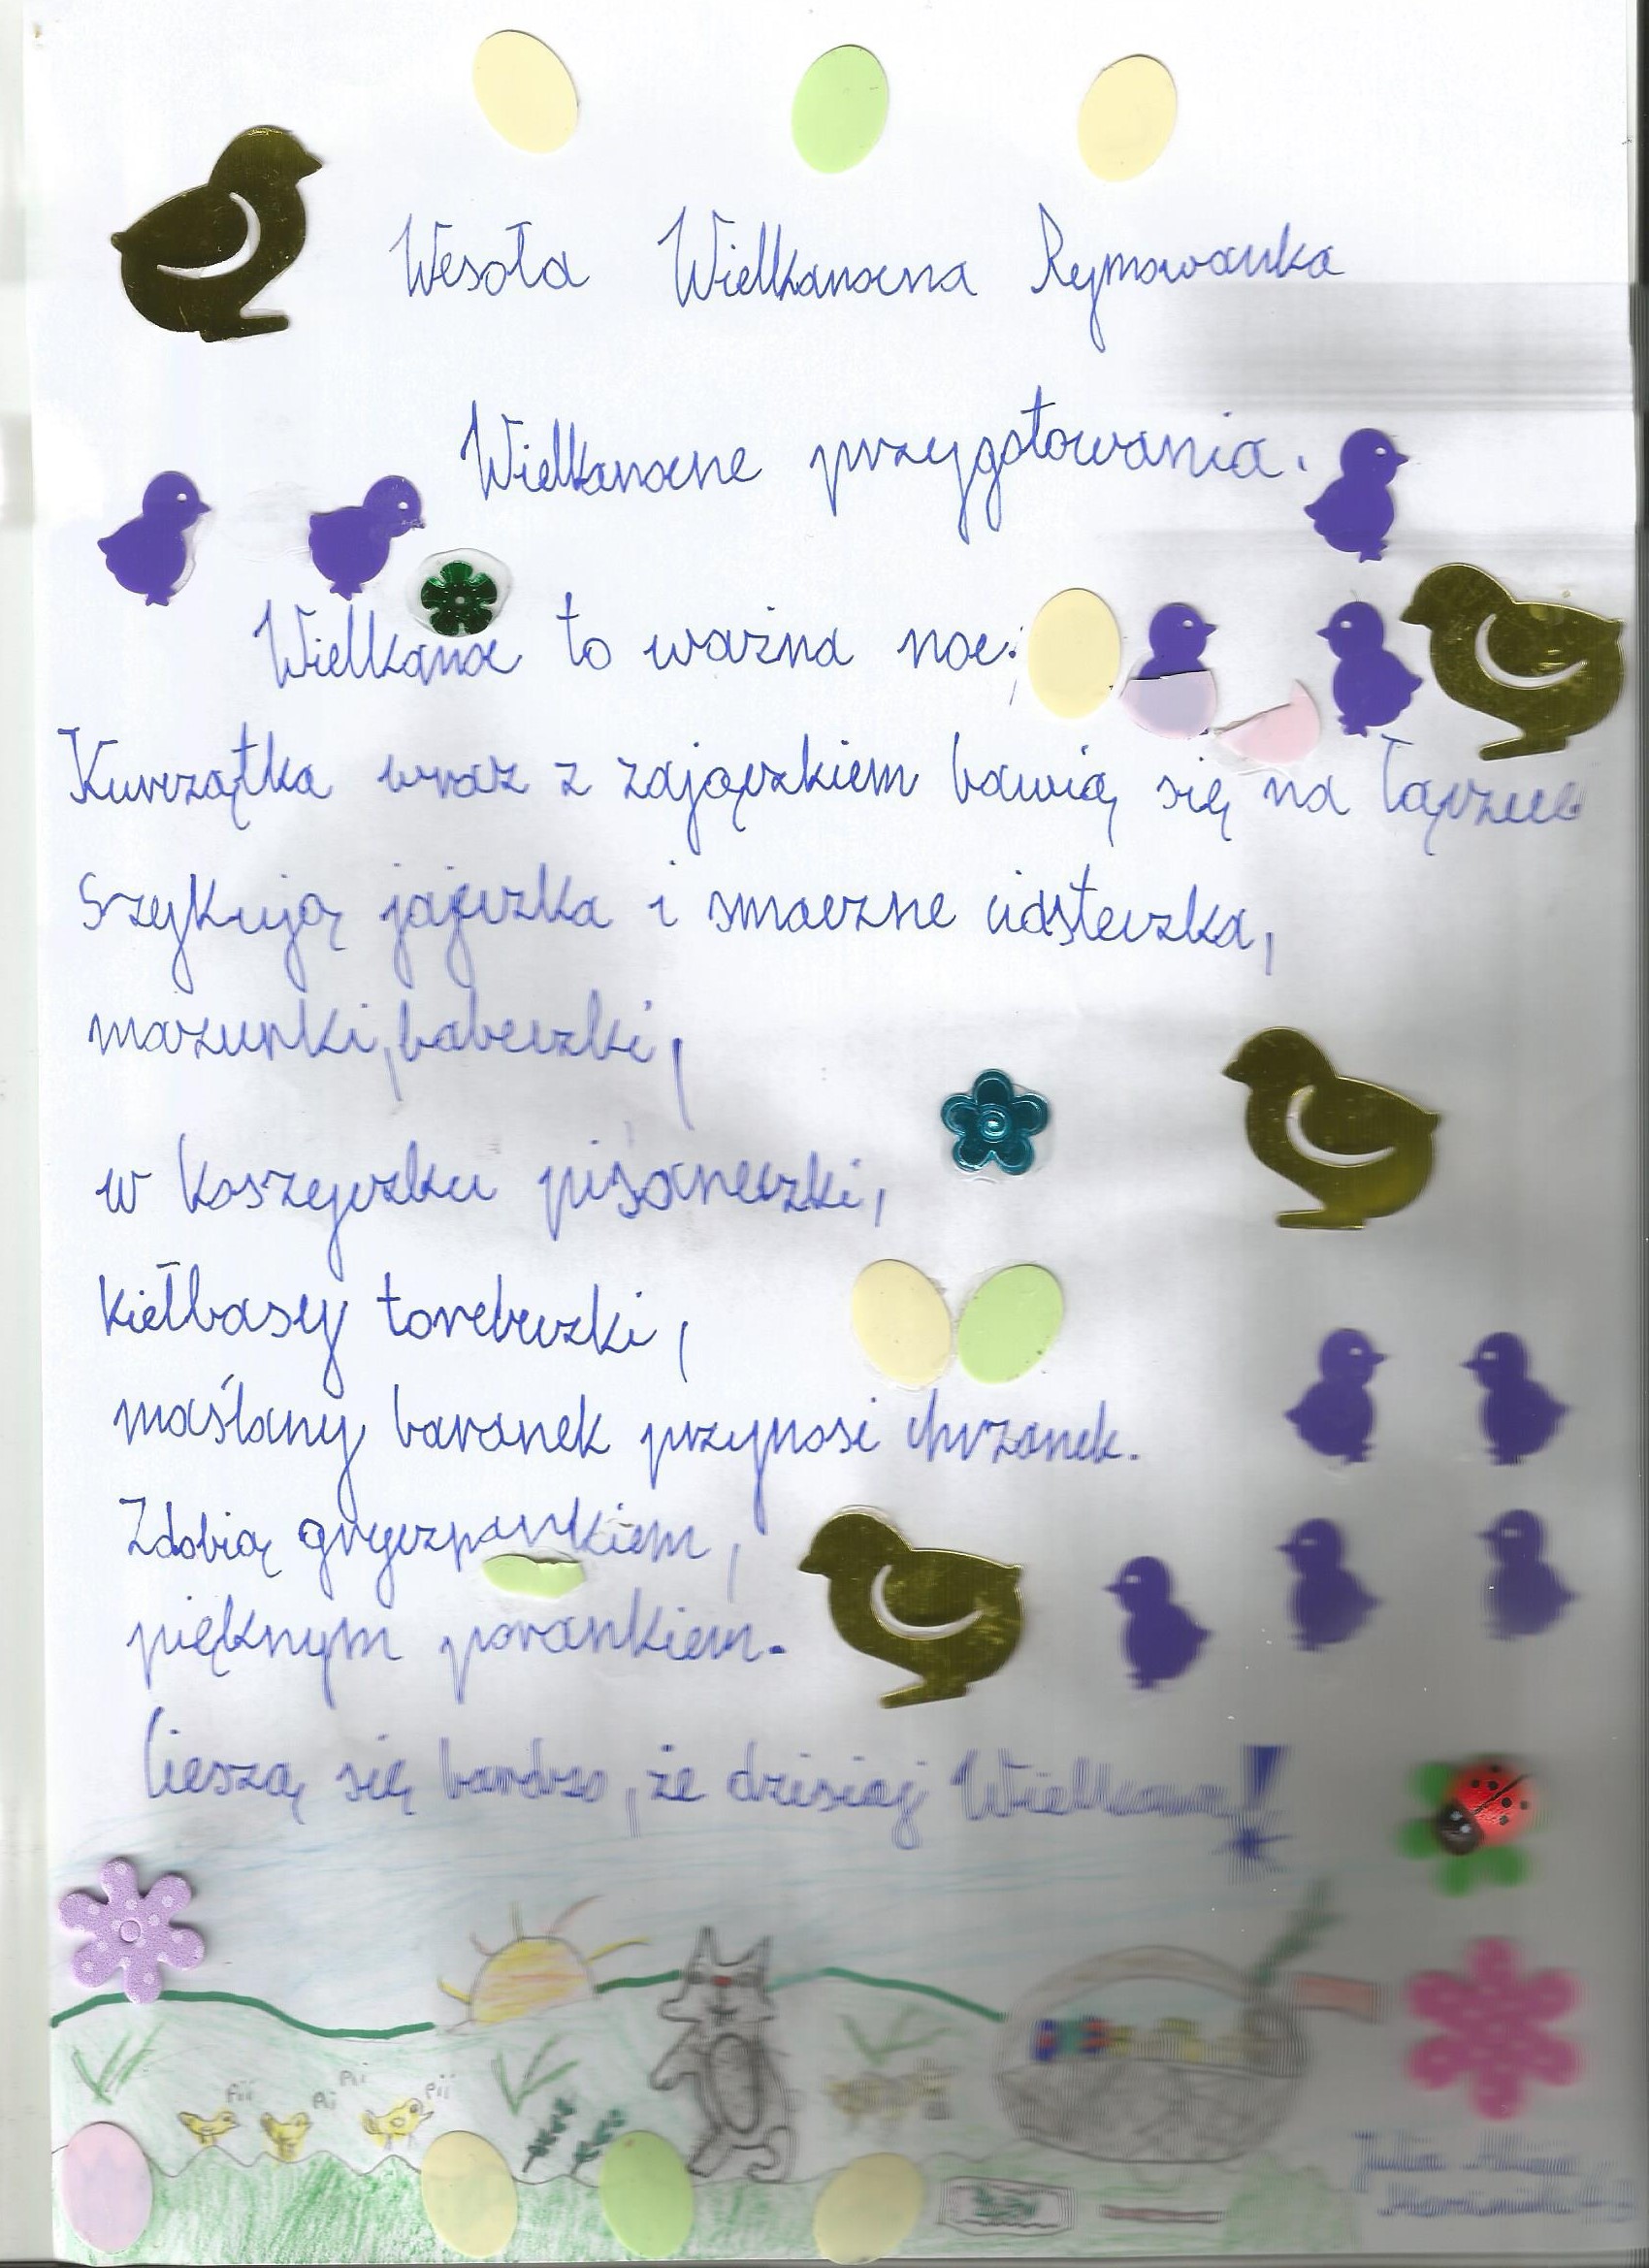 Wesoła Wielkanocna Rymowanka
Wielkanocne przygotowania.
Wielkanoc to ważna noc:
Kurczątka wraz z zajączkiem bawią się na łączce
Szykują jajeczka i smaczne ciasteczka,
mazurki, babeczki,
w koszyczku pisaneczki,
kiełbasy torebeczki,
maślany baranek przynosi chrzanek.
Zdobią gryczpankiem,
pięknym porankiem.
Cieszą się bardzo, że dzisiaj Wielkanoc!
Pii
Pi
Pii
Pii
Julia